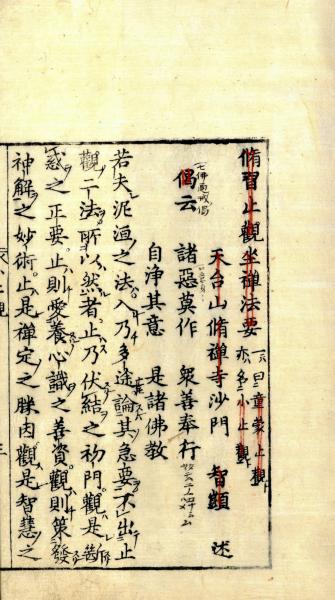 脩習止觀坐禪法要 一曰童蒙止觀
亦名小止觀
天台山脩禪寺沙門 智顗 述
七佛通戒偈
偈云 諸惡莫作 衆善奉行
自淨其意 是諸佛教
若夫泥洹之法入乃多途論其急要不出止
觀二法所以然者止乃伏結之初門觀是斷
惑之正要止則愛養心識之善資觀則策發
神解之妙術止是禪定之勝因觀是智慧之